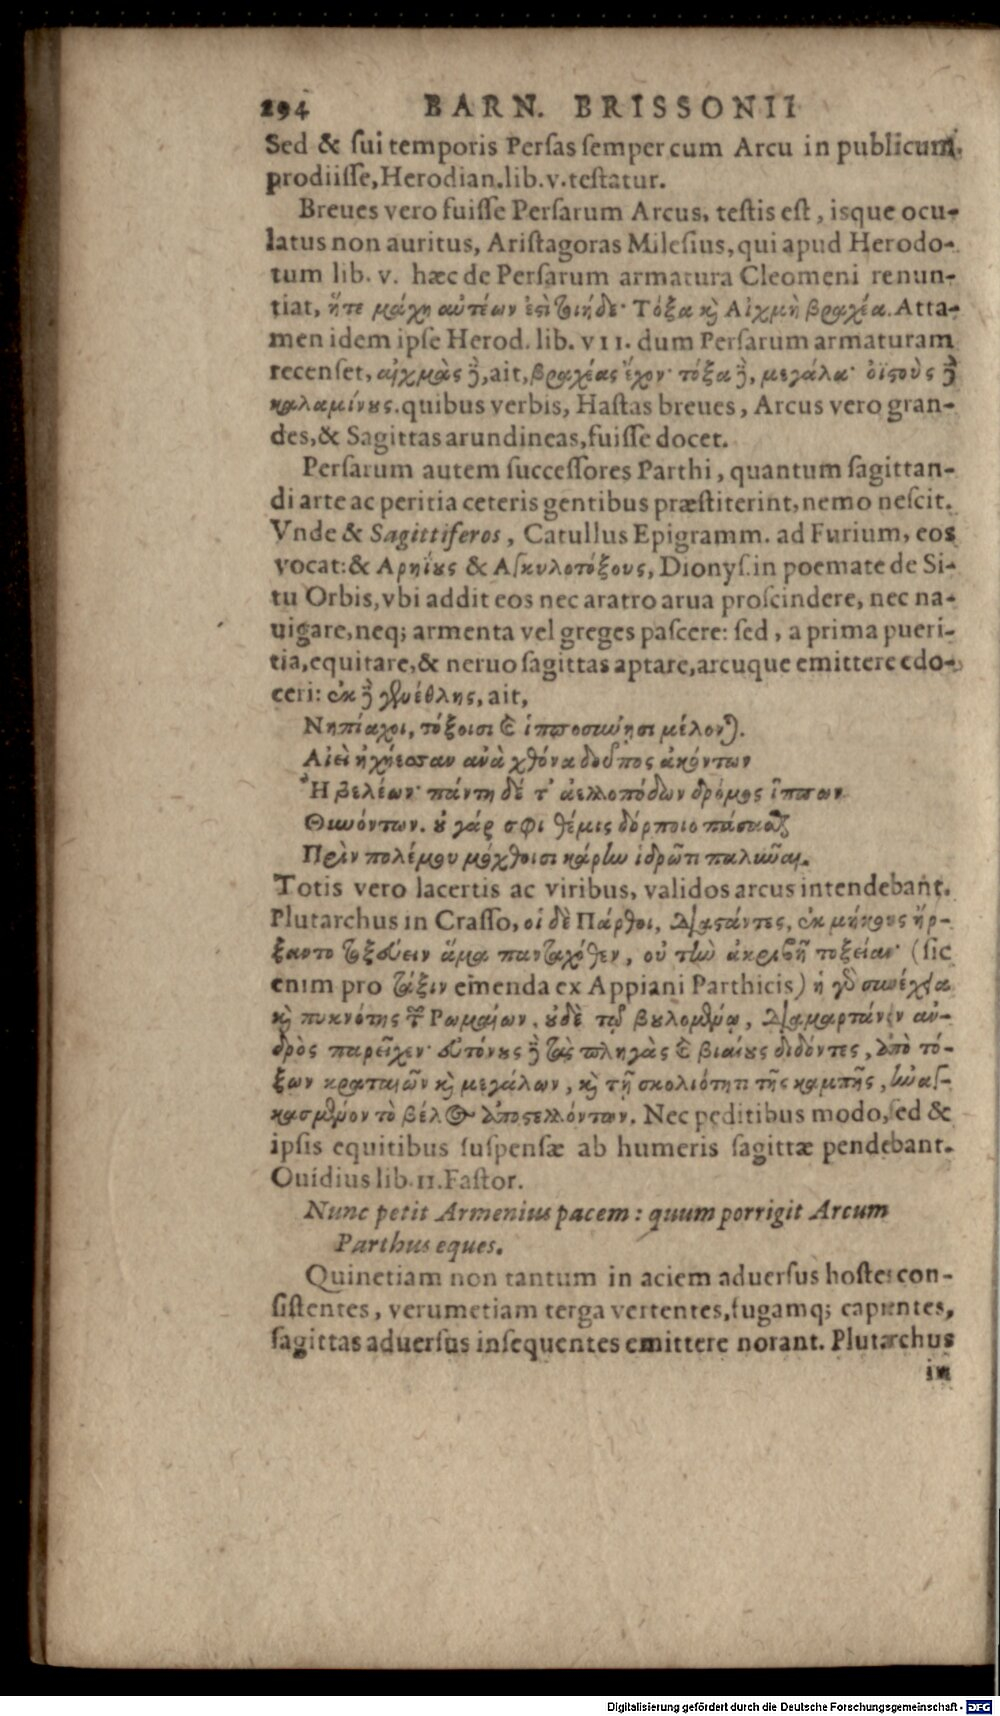 294 BARN. BRISSONII
Sed & sui temporis Persas semper cum Arcu in publicum
prodiisse, Herodian. lib. v. testatur.
Breues vero fuisse Persarum Arcus, testis est, isque ocu-
latus non auritus, Aristagoras Milesius, qui apud Herodo-
tum lib. v. hæc de Persarum armatura Cleomeni renun-
tiat, ἥτε μάχη αὐτέων ἐστὶ τοιήδε· Τόξα καὶ Αἰχμὴ βραχέα. Atta-
men idem ipse Herod. lib. VII. dum Persarum armaturam
recenset, αἰχμὰς δὲ, ait, βραχέας ἔχον· τόξα δὲ, μεγάλα· ὀϊστοὺς δὲ
καλαμίνους. quibus verbis, Hastas breues, Arcus vero gran-
des, & Sagittas arundineas, fuisse docet.
Persarum autem successores Parthi, quantum sagittan-
di arte ac peritia ceteris gentibus præstiterint, nemo nescit.
Vnde & Sagittiferos, Catullus Epigramm. ad Furium, eos
vocat: & Αρηΐους & Αγκυλοτόξους, Dionys. in poemate de Si-
tu Orbis, vbi addit eos nec aratro arua proscindere, nec na-
uigare, neq; armenta vel greges pascere: sed, a prima pueri-
tia, equitare, & neruo sagittas aptare, arcuque emittere edo-
ceri: ἐκ δὲ γενέθλης, ait,
Νηπίαχοι, τόξοισι καὶ ἱπποσύνῃσι μέλονται.
Αἰεὶ ἠχήεσσαν ἀνὰ χθόνα δοῦπος ἀκόντων
Ἢ βελέων· πάντη δέ τ' ἀελλοπόδων δρόμος ἵππων
Θυνόντων. οὐ γάρ σφι θέμις δόρποιο πάσασθαι
Πρὶν πολέμου μόχθοισι κάρην ἱδρῶτι παλῦναι.
Totis vero lacertis ac viribus, validos arcus intendebant.
Plutarchus in Crasso, οἱ δὲ Πάρθοι, διαστάντες, ἐκ μήκους ἤρ-
ξαντο τοξεύειν ἅμα πανταχόθεν, οὐ τὴν ἀκριβῆ τοξείαν· (sic
enim pro τάξιν emenda ex Appiani Parthicis) ἡ γὰρ συνέχεια
καὶ πυκνότης τῶν Ρωμαίων, οὐδὲ τῷ βουλομένῳ, διαμαρτάνειν ἀν-
δρὸς παρεῖχεν· εὐτόνους δὲ τὰς πληγὰς καὶ βιαίους διδόντες, ἀπὸ τό-
ξων κραταιῶν καὶ μεγάλων, καὶ τῇ σκολιότητι τῆς καμπῆς, ἠναγ-
κασμένον τὸ βέλος ἀποστελλόντων. Nec peditibus modo, sed &
ipsis equitibus suspensæ ab humeris sagittæ pendebant.
Ouidius lib. II. Fastor.
Nunc petit Armenius pacem: quum porrigit Arcum
Parthus eques.
Quinetiam non tantum in aciem aduersus hostes con-
sistentes, verumetiam terga vertentes, fugamq; capientes,
sagittas aduersus insequentes emittere norant. Plutarchus
in
Digitalisierung gefördert durch die Deutsche Forschungsgemeinschaft - DFG